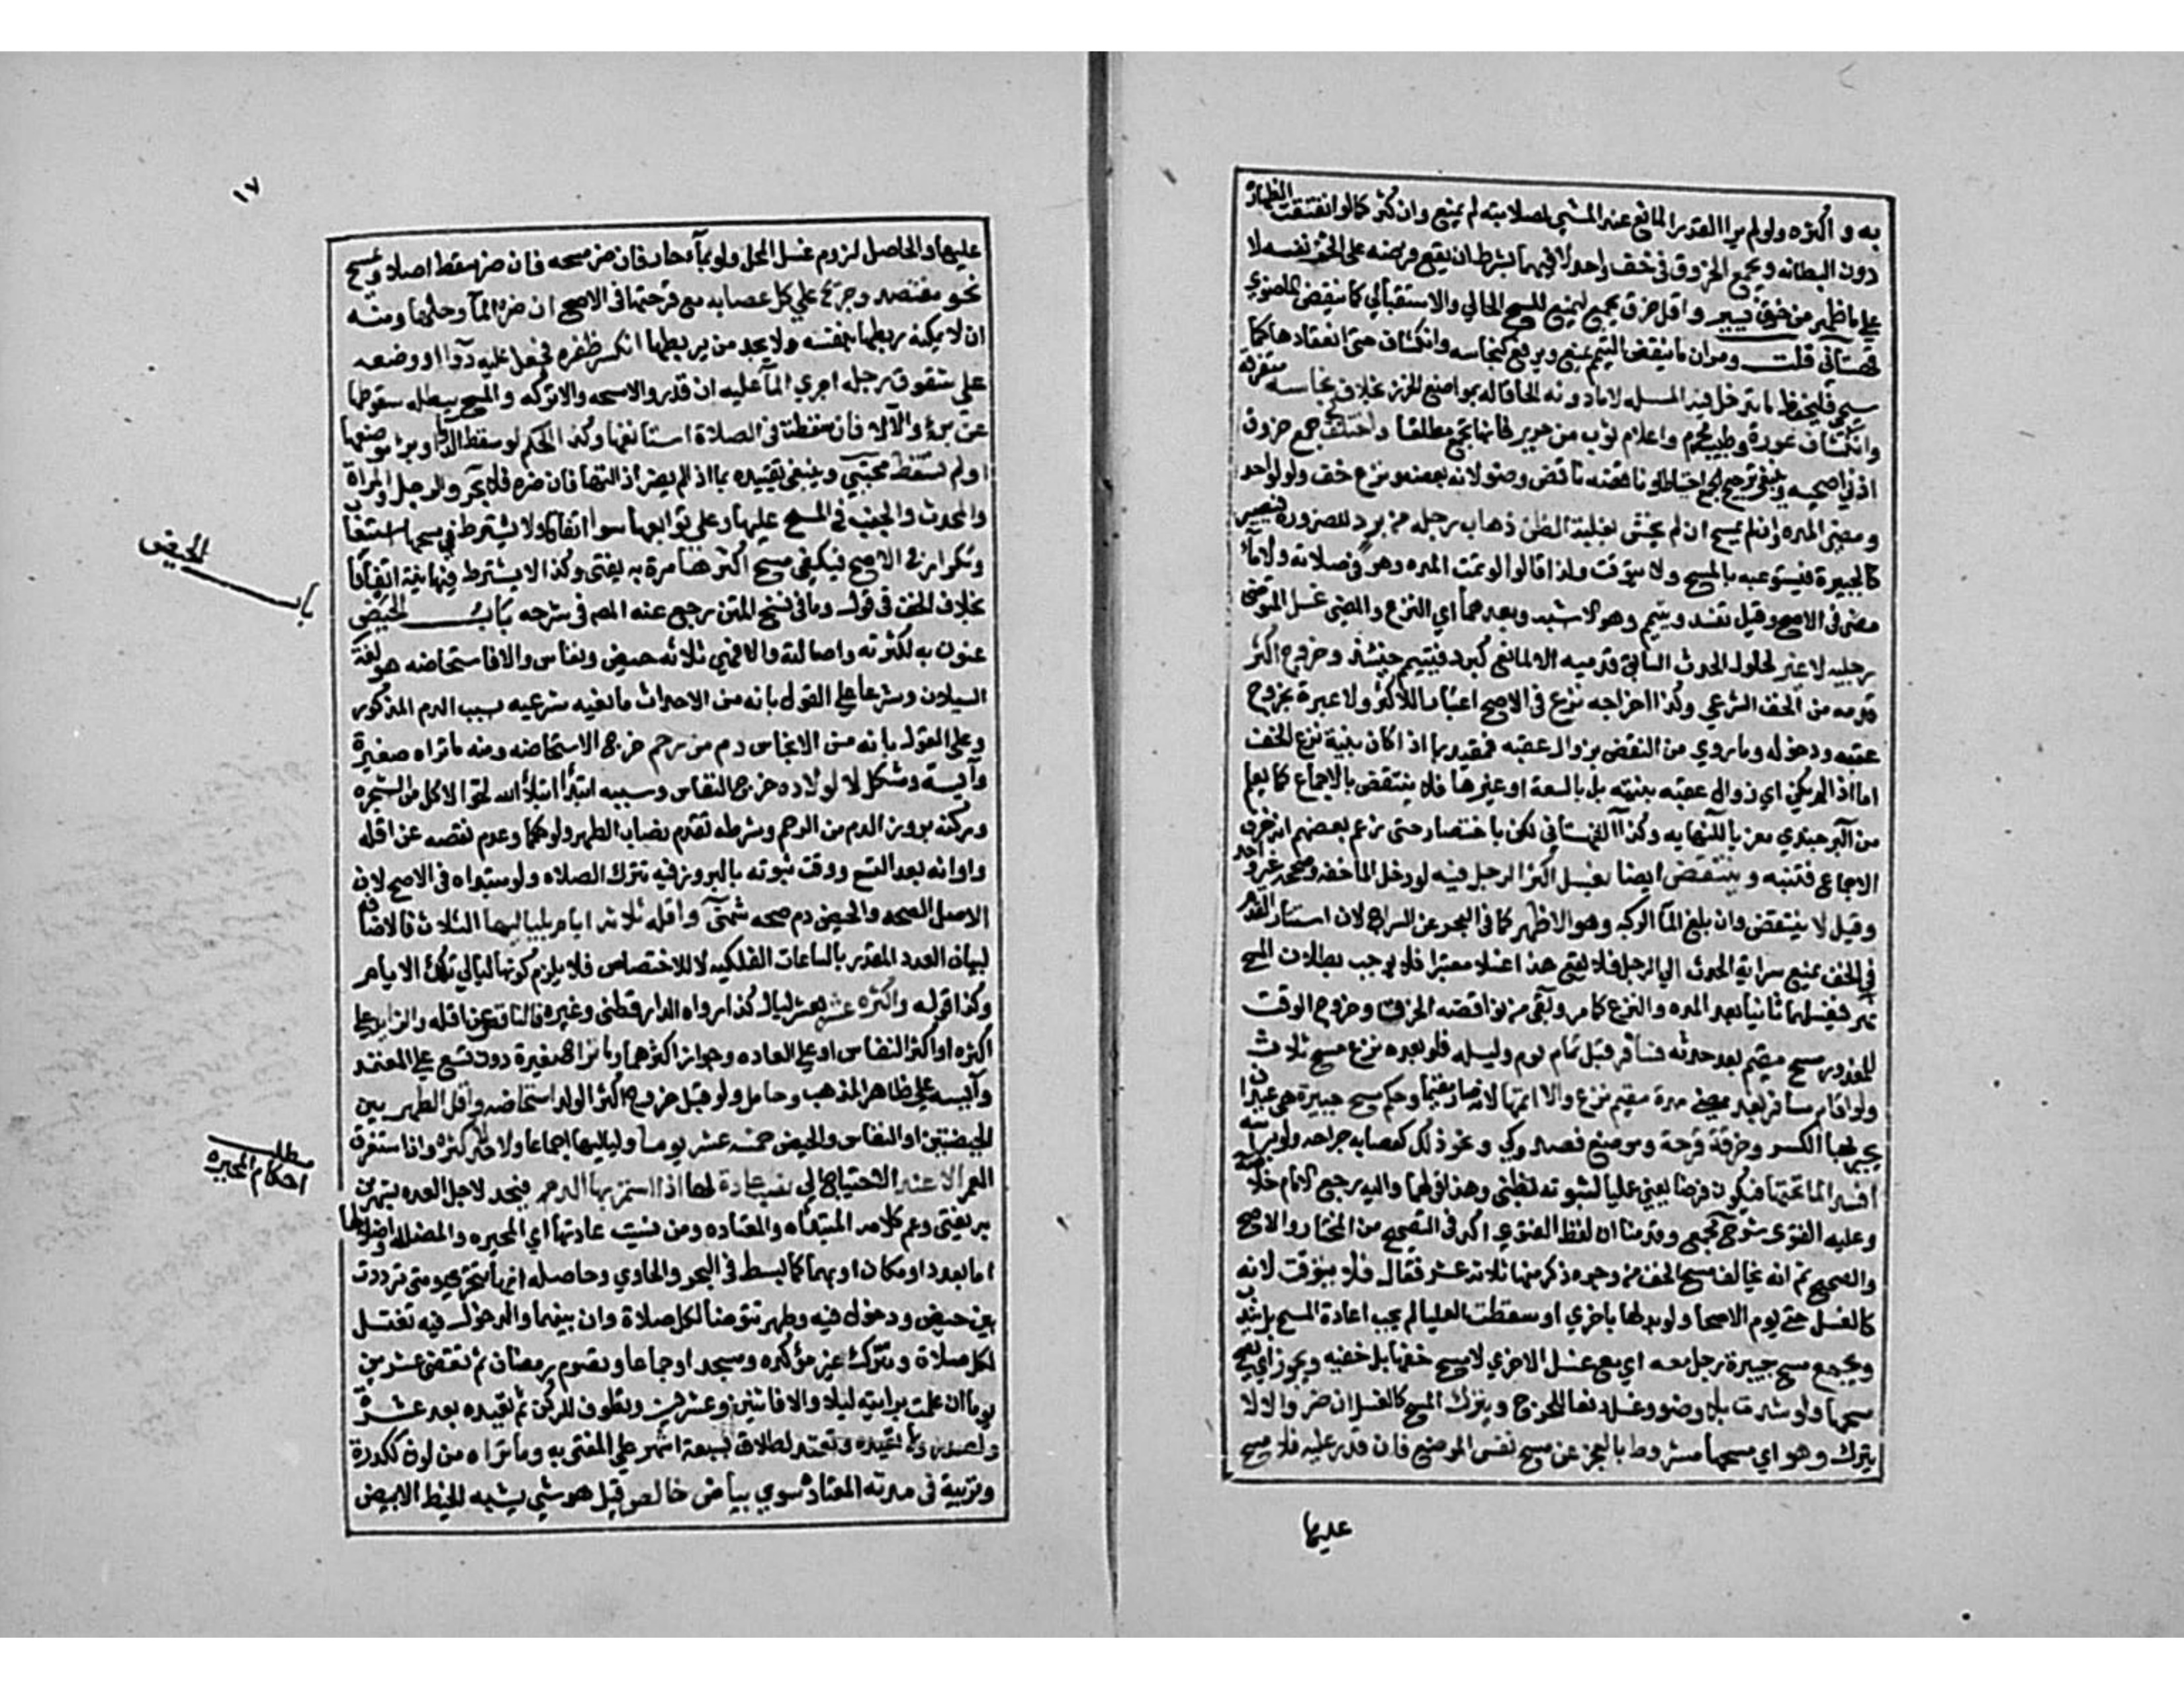 به و أكثره ولو لم ير القدر المانع عند المشي لصلابته لم يمنع وان كثر كما لو انفتقت الظهارة
دون البطانه ويجمع الخروق في خف واحد لا فيهما بشرط ان يقع فرضه على الخف نفسه لا
على ما ظهر من خرق يسير واقل خرق يجمع ليمنع المسح الحالي والاستقبالي كما ينقض الماضوي
قهستاني قلت ومر ان ما ينقض التيمم يمنع ويرفع كنجاسه وانكشاف حتى انعقادها كما
سيجي فليحفظ ما تدخل فيه المسله لا ما دونه الحاقا له بمواضع الخرز بخلاف نجاسه متفرقة
وانكشاف عورة وطيب محرم واعلام ثوب من حرير فانها تجمع مطلقا واختلف في جمع خروق
اذني اضحيه وينبغي ترجيح الجمع احتياطا وناقضه ناقض وضو لانه بعضه ونزع خف ولو لواحد
ومضي المده وان لم يمسح ان لم يخش بغلبة الظن ذهاب رجله من برد للضرورة فيصير
كالجبيرة فيستوعبه بالمسح ولا يتوقت ولذا قالوا لو تمت المده وهو في صلاته ولا مآء
مضى في الاصح وقيل تفسد ويتيمم وهو الاشبه وبعدهما اي النزع والمضي غسل المتوضي
رجليه لا غير لحلول الحدث السابق قدميه الا لمانع كبرد فيتيمم حينئذ وخروج اكثر
قدمه من الخف الشرعي وكذا اخراجه نزع في الاصح اعتبارا للاكثر ولا عبرة بخروج
عقبه ودخوله وما روي من النقض بزوال عقبه فمقيد بما اذا كان بنية نزع الخف
اما اذا لم يكن اي زوال عقبه بنيته بل بالسعة او غيرها فلا ينتقض بالاجماع كما يعلم
من البرجندي معزيا للنهايه وكذا القهستاني لكن باختصار حتى زعم بعضهم انه خرق
الاجماع فتنبه وينتقض ايضا بغسل اكثر الرجل فيه لو دخل الما خفه وصححه غير واحد
وقيل لا ينتقض وان بلغ الما الركبه وهو الاظهر كما في البحر عن السراج لان استتار القدم
في الخف يمنع سراية الحدث الى الرجل فلا يقع هذا غسلا معتبرا فلا يوجب بطلان المسح
نهر فيغسلهما ثانيا بعد المده والنزع كما مر وبقي من نواقضه الخرق وخروج الوقت
للمعذور مسح مقيم بعد حدثه فسافر قبل تمام يوم وليله فلو بعده نزع مسح ثلاث
ولو اقام مسافر بعد مضي مدة مقيم نزع والا اتمها لانه صار مقيما وحكم مسح جبيرة هي عيدان
يجبر بها الكسر وخرقة قرحة وموضع فصد وكي ونحو ذلك كعصابه جراحه ولو براسه
فيكون فرضا يعني عمليا لثبوته بظني وهذا قولهما واليه رجع الامام خلاصة
وعليه الفتوى شرح مجمع وقدمنا ان لفظ الفتوى اكد في التصحيح من المختار والاصح
والصحيح ثم انه يخالف مسح الخف من وجوه ذكر منها ثلاثة عشر فقال فلا يتوقت لانه
كالغسل حتى يوم الاصحا ولو بدلها باخري او سقطت العليا لم يجب اعادة المسح بل يندب
ويجمع مسح جبيرة رجل معه اي مع غسل الاخري لا مسح خفها بل خفيه ويجوز اي يصح
مسحها ولو شدت بلا وضو وغسل دفعا للحرج ويترك المسح كالغسل ان ضر والا لا
يترك وهو اي مسحها مشروط بالعجز عن مسح نفس الموضع فان قدر عليه فلا مسح
عليها
١٧
عليها والحاصل لزوم غسل المحل ولو بمآء حار فان ضر مسحه فان ضر سقط اصلا ويمسح
نحو مفتصد وجريح على كل عصابه مع فرجتها في الاصح ان ضره المآ وحلها ومنه
ان لا يمكنه ربطها بنفسه ولا يجد من يربطها انكسر ظفره فجعل عليه دوآ او وضعه
على شقوق رجله اجري المآ عليه ان قدر والا مسحه والا تركه والمسح يبطله سقوطها
عن برؤ والا لا فان سقطت في الصلاة استانفها وكذا الحكم لو سقط الدوا او برئ موضعها
ولم تسقط مجتبى وينبغي تقييده بما اذا لم يضر ازالتها فان ضره فلا بحر والرجل والمراة
والمحدث والجنب في المسح عليها وعلى توابعها سوا اتفاقا ولا يشترط في مسحها استيعاب
وتكرار في الاصح فيكفي مسح اكثرها مرة به يفتى وكذا لا يشترط فيها نية اتفاقا
بخلاف الخف في قول وما في نسخ المتن رجع عنه المص في شرحه باب الحيض
باب الحيض
عنون به لكثرته واصالته والا فهي ثلاثه حيض ونفاس والا فاستحاضه هو لغة
السيلان وشرعا على القول بانه من الاحداث مانعيه شرعيه بسبب الدم المذكور
وعلى القول بانه من الانجاس دم من رحم خرج الاستحاضه ومنه ما تراه صغيرة
وآيسة ومشكل لا لولاده خرج النفاس وسببه ابتدآ ابتلآ الله لحوا لاكل من الشجره
وركنه بروز الدم من الرحم وشرطه تقدم نصاب الطهر ولو حكما وعدم نقصه عن اقله
واوانه بعد التسع ووقت ثبوته بالبروز فيه تترك الصلاه ولو مبتداه في الاصح لان
الاصل الصحه والحيض دم صحه شمني واقله ثلاثة ايام بلياليها الثلاث فالاضافة
لبيان العدد المقدر بالساعات الفلكيه لا للاختصاص فلا يلزم كونها ليالي تلك الايام
وكذا قوله واكثره عشرة بعشر ليال كذا رواه الدارقطني وغيره فالناقص عن اقله والزايد على
اكثره او اكثر النفاس او على العاده وجاوز اكثرهما وما تراه صغيرة دون تسع على المعتمد
وآيسه على ظاهر المذهب وحامل ولو قبل خروج اكثر الولد استحاضه واقل الطهر بين
الحيضتين او النفاس والحيض خمسة عشر يوما ولياليها اجماعا ولا حد لاكثره وان استغرق
العمر الا عند الاحتياج الى نصب عادة لها اذا استمر بها الدم فيحد لاجل العده بشهرين
مطلب احكام المحيره
به يفتى وعم كلامه المبتداه والمعتاده ومن نسيت عادتها اي المحيره والمضلله واضلالها
اما بعدد او مكان او بهما كما بسط في البحر والحاوي وحاصله انها تتحرى ومتى ترددت
بين حيض ودخول فيه وطهر تتوضا لكل صلاة وان بينهما والدخول فيه تغتسل
لكل صلاة وتترك غير مؤكده ومسجد او جماعا وتصوم رمضان ثم تقضي عشرين
يوما ان علمت بدايته ليلا والا فاثنين وعشرين وتطوف لركن ثم تعيده بعد عشرة
ولصدر ولا تعيده وتعتد لطلاق بسبعة اشهر على المفتى به وما تراه من لون ككدرة
وتربية في مدته المعتاد سوي بياض خالص قيل هو شي يشبه الخيط الابيض